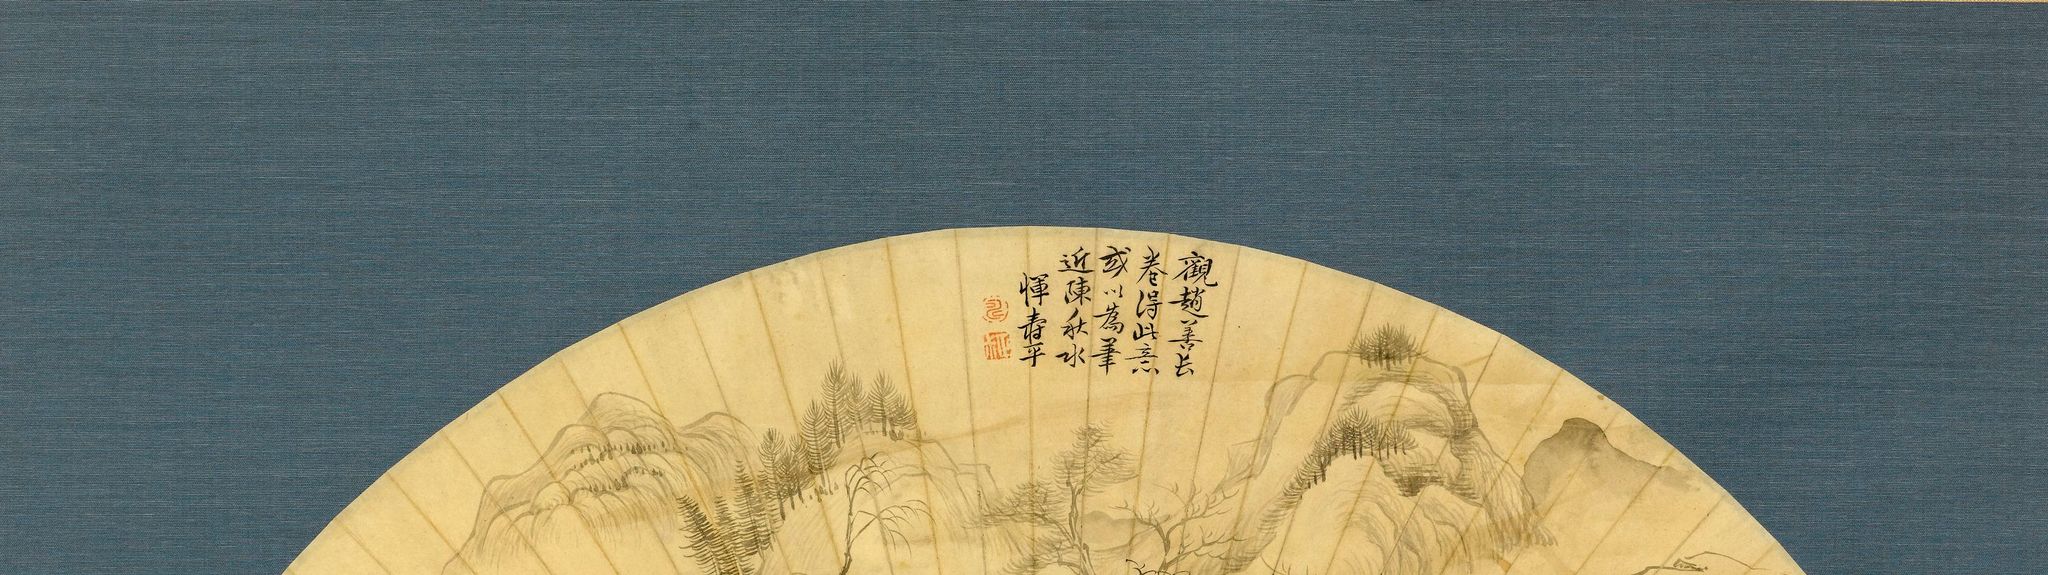 觀趙善长
卷得此意
或以為筆
近陳秋水
惲壽平